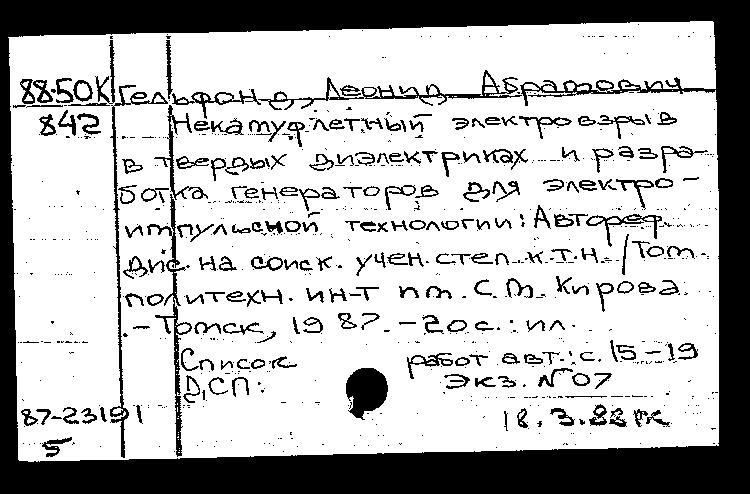 88-50К Гельфонд, Леонид Абрамович
842 Некамуфлетный электровзрыв
в твердых диэлектриках и разра-
ботка генераторов для электро-
импульсной технологии: Автореф.
Дис. на соиск. учен. степ. к.т.н. / Том.
политехн. ин-т им. С.М. Кирова.
.- Томск, 1987. - 20 с.: ил.
Список работ авт.: с. 15-19
ДСП: Экз. № 07
87-23191 18.3.88
5